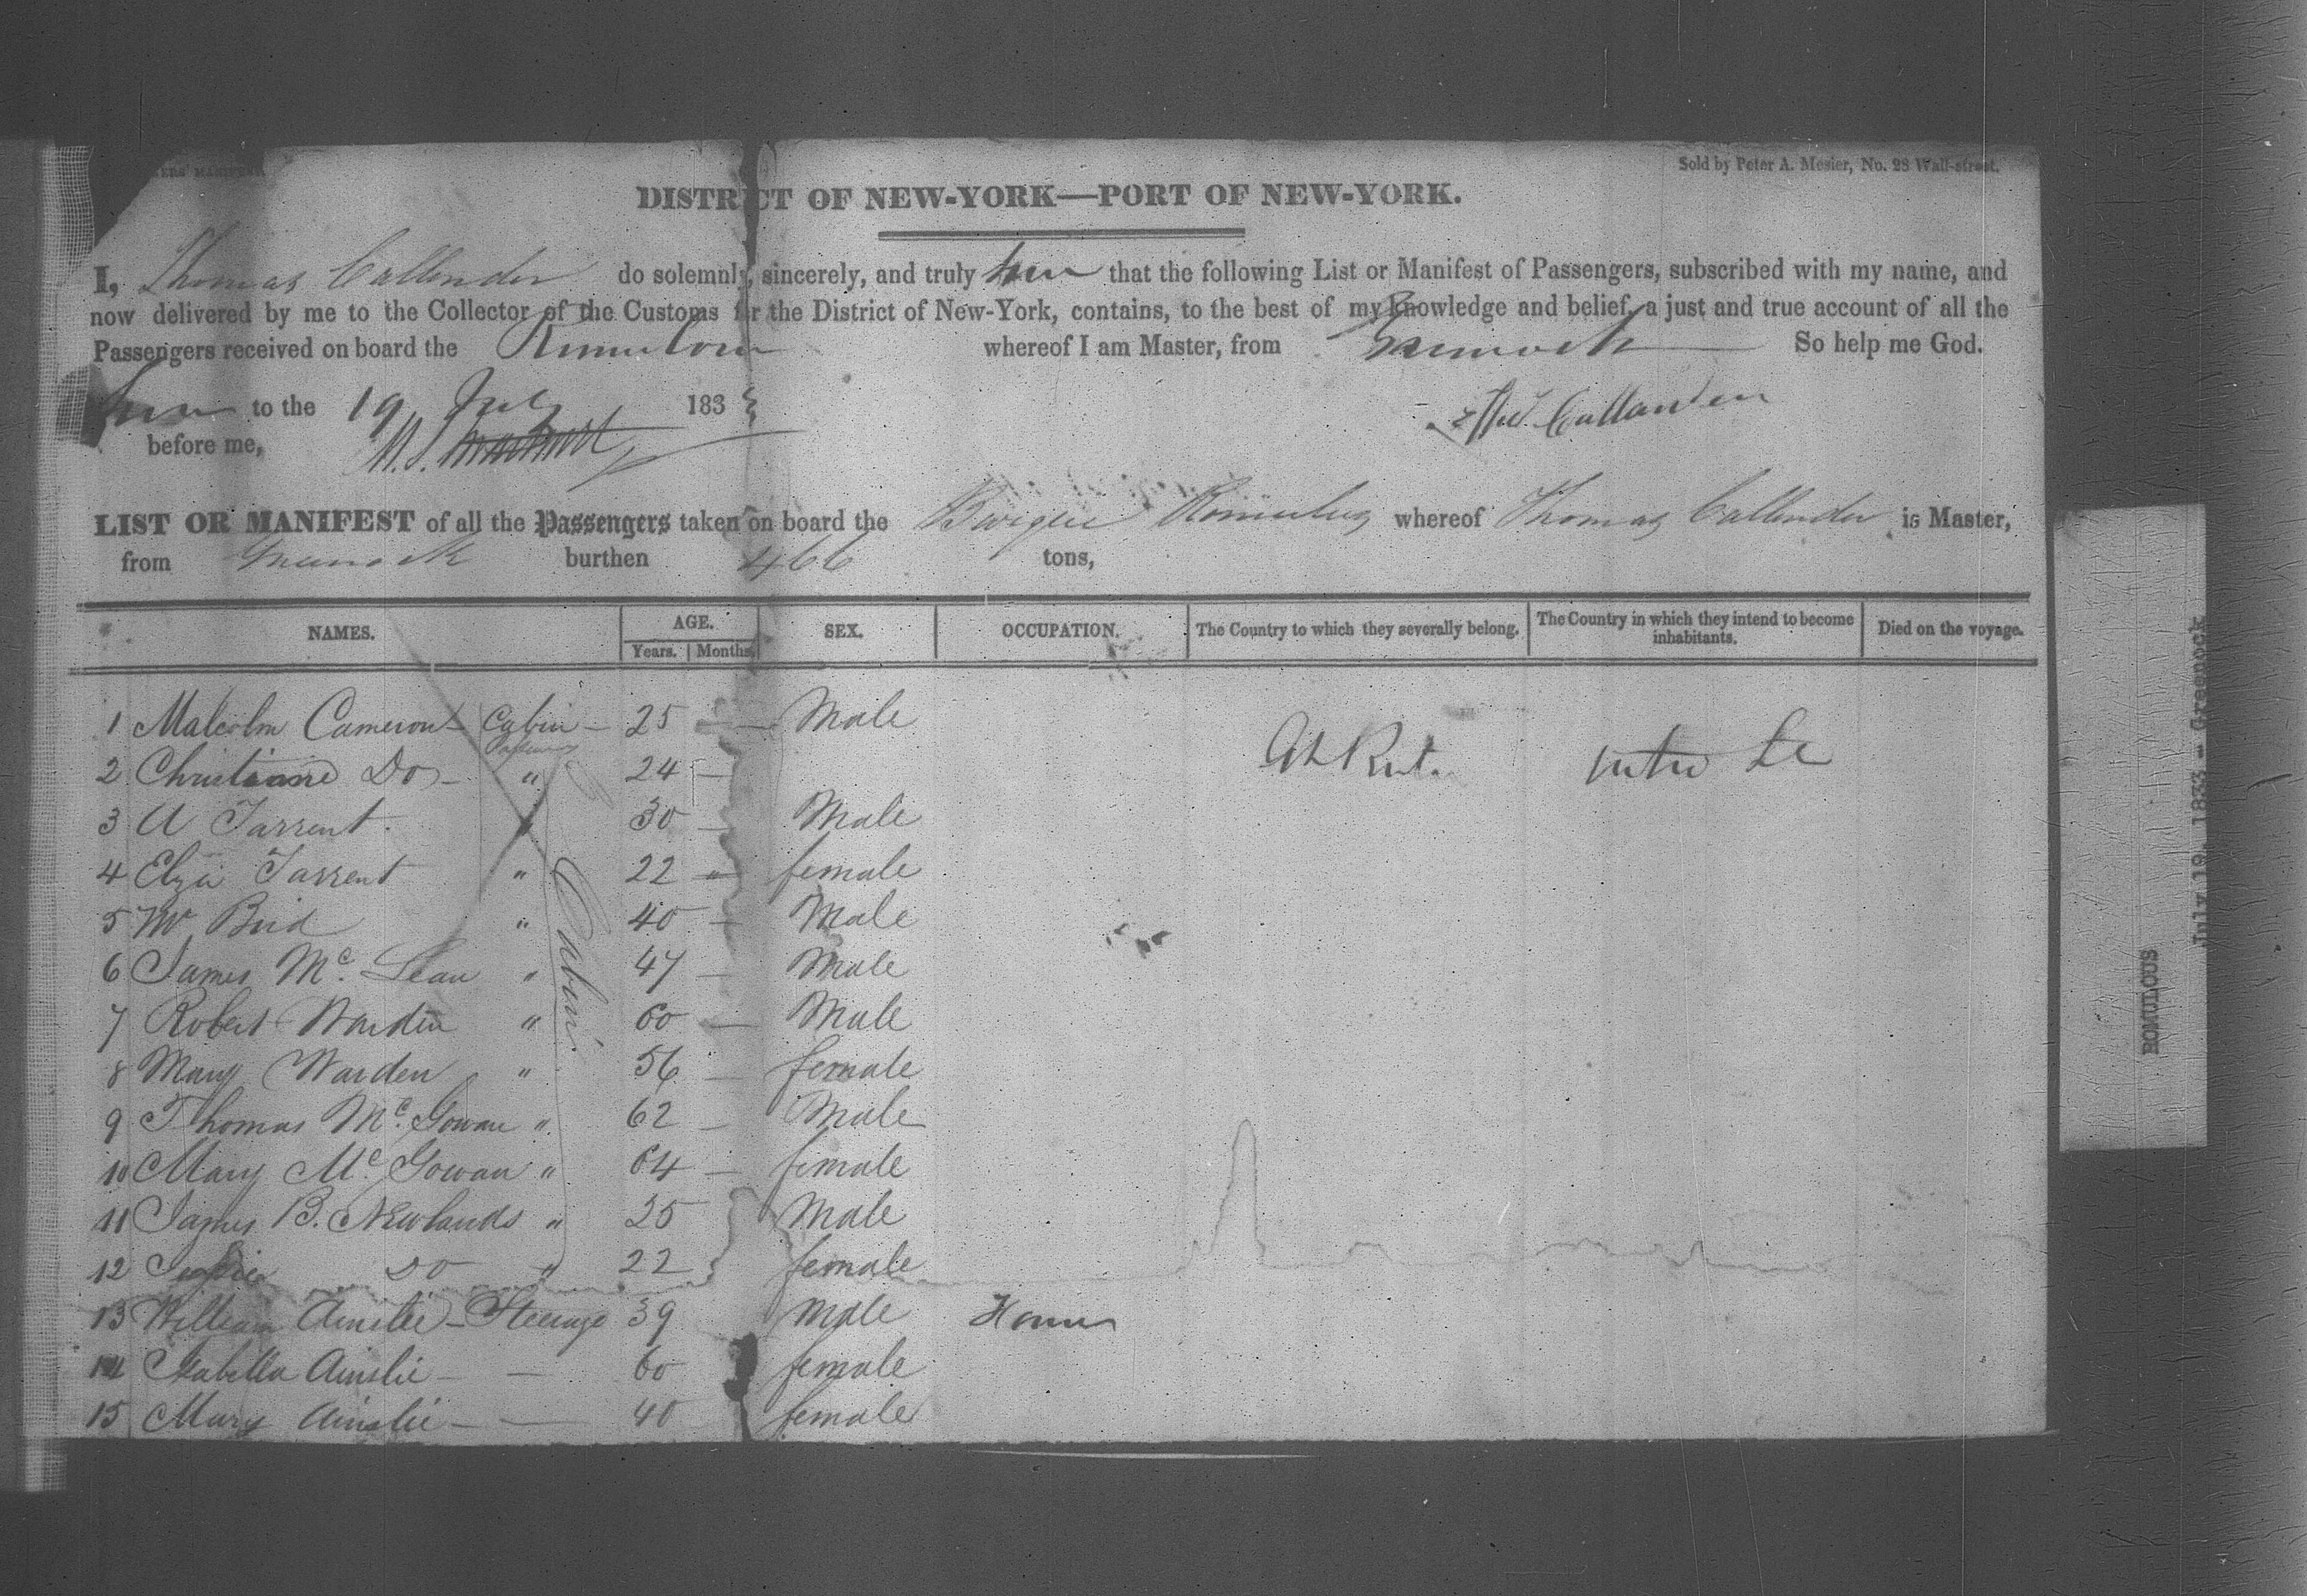 Sold by Peter A. Mesier, No. 28 Wall-street.
DISTRICT OF NEW-YORK—PORT OF NEW-YORK.
I, Thomas Callender do solemnly, sincerely, and truly that the following List or Manifest of Passengers, subscribed with my name, and
now delivered by me to the Collector of the Customs for the District of New-York, contains, to the best of my knowledge and belief, a just and true account of all the
Passengers received on board the whereof I am Master, from Greenock So help me God.
to the 19 July 1833
Thos. Callender
before me,
LIST OR MANIFEST of all the Passengers taken on board the Barque Romulus whereof Thomas Callender is Master,
from Greenock burthen 466 tons,
NAMES. AGE. SEX. OCCUPATION. The Country to which they severally belong. The Country in which they intend to become inhabitants. Died on the voyage.
Years. Months
1 Malcolm Cameron Cabin 25 — Male
2 Do " 24 — Gt Brit.
3 A Tarrent 30 — Male
4 Eliza Tarrent " 22 " female
5 Mr Bird " 40 — Male
6 James Mc. Lean " 47 — Male
Cabin
7 Robert Warden " 60 — Male
8 Mary Warden " 56 — female
9 Thomas Mc. Gowan " 62 — Male
10 Mary Mc Gowan " 64 — female
11 James B. Newlands " 25 Male
12 Do " 22 female
13 William Ainslie — Steerage 39 Male
14 Isabella Ainslie — — 60 female
15 Mary Ainslie — — 40 female
ROMULOUS
July 19, 1833 - Greenock